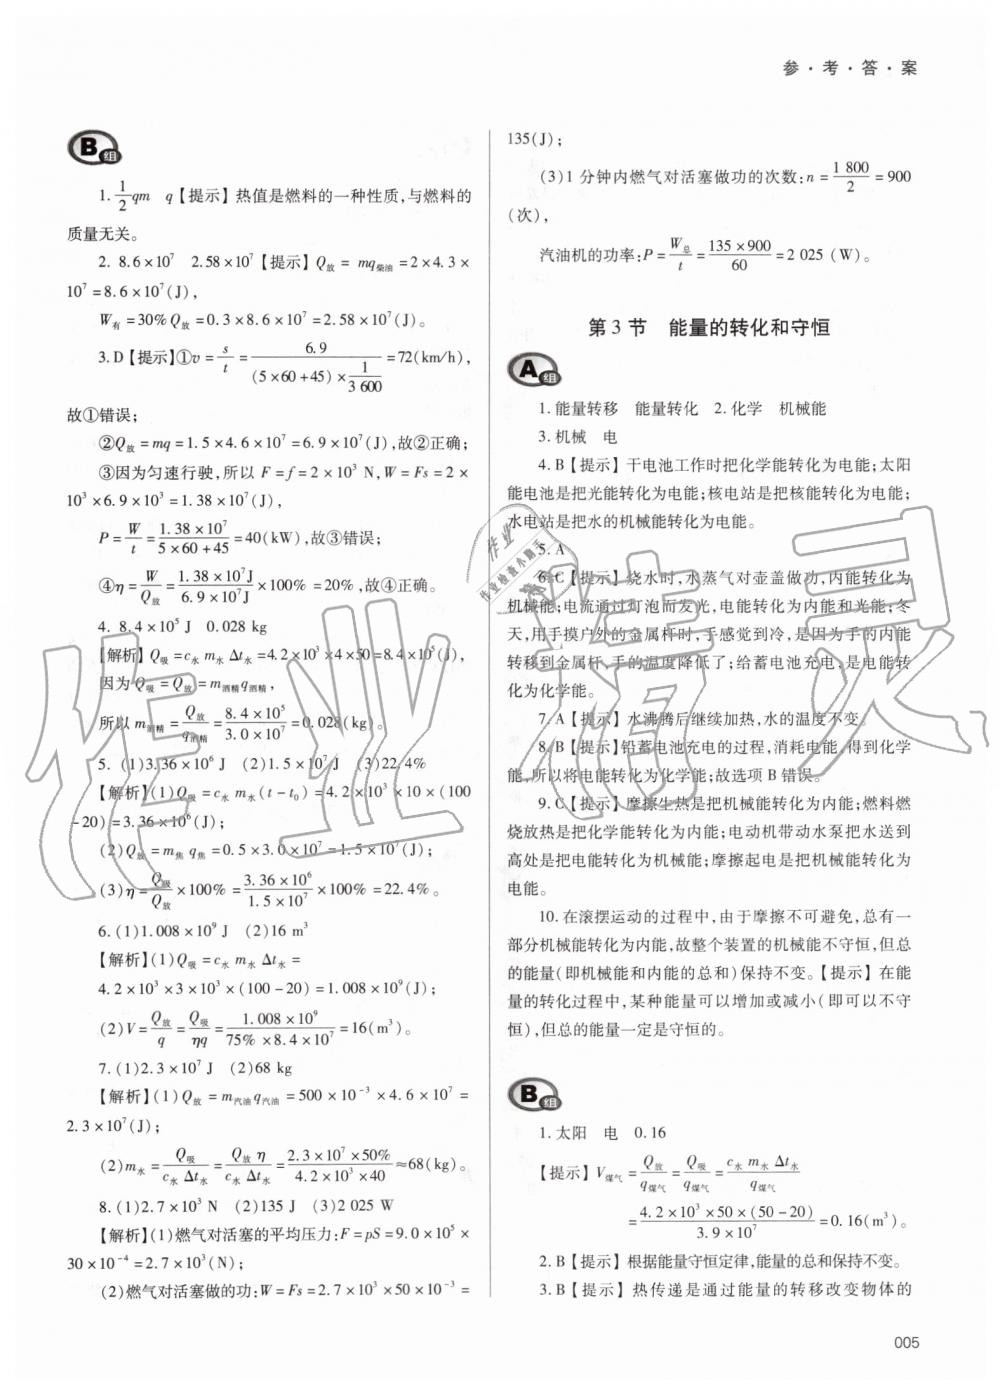 参·考·答·案
B组
1. 1/2 qm  q【提示】热值是燃料的一种性质,与燃料的
质量无关。
2. 8.6×10⁷  2.58×10⁷【提示】Q放 = mq柴油 = 2×4.3×
10⁷ = 8.6×10⁷(J),
W有 = 30% Q放 = 0.3×8.6×10⁷ = 2.58×10⁷(J)。
3. D【提示】①v = s/t = 6.9/((5×60+45)×1/3 600) = 72(km/h),
故①错误;
②Q放 = mq = 1.5×4.6×10⁷ = 6.9×10⁷(J),故②正确;
③因为匀速行驶,所以 F = f = 2×10³ N, W = Fs = 2×
10³×6.9×10³ = 1.38×10⁷(J),
P = W/t = 1.38×10⁷/(5×60+45) = 40(kW),故③错误;
④η = W/Q放 = 1.38×10⁷J/6.9×10⁷J ×100% = 20%,故④正确。
4. 8.4×10⁵ J  0.028 kg
【解析】Q吸 = c水 m水 Δt水 = 4.2×10³×4×50 = 8.4×10⁵(J),
因为 Q吸 = Q放 = m酒精 q酒精,
所以 m酒精 = Q放/q酒精 = 8.4×10⁵/3.0×10⁷ = 0.028(kg)。
5. (1)3.36×10⁶ J  (2)1.5×10⁷ J  (3)22.4%
【解析】(1)Q吸 = c水 m水(t-t₀) = 4.2×10³×10×(100
-20) = 3.36×10⁶(J);
(2)Q放 = m焦 q焦 = 0.5×3.0×10⁷ = 1.5×10⁷(J);
(3)η = Q吸/Q放 ×100% = 3.36×10⁶/1.5×10⁷ ×100% = 22.4%。
6. (1)1.008×10⁹ J  (2)16 m³
【解析】(1)Q吸 = c水 m水 Δt水 =
4.2×10³×3×10³×(100-20) = 1.008×10⁹(J);
(2)V = Q放/q = Q吸/ηq = 1.008×10⁹/(75%×8.4×10⁷) = 16(m³)。
7. (1)2.3×10⁷ J  (2)68 kg
【解析】(1)Q放 = m汽油 q汽油 = 500×10⁻³×4.6×10⁷ =
2.3×10⁷(J);
(2)m水 = Q吸/(c水 Δt水) = Q放 η/(c水 Δt水) = (2.3×10⁷×50%)/(4.2×10³×40) ≈ 68(kg)。
8. (1)2.7×10³ N  (2)135 J  (3)2 025 W
【解析】(1)燃气对活塞的平均压力: F = pS = 9.0×10⁵×
30×10⁻⁴ = 2.7×10³(N);
(2)燃气对活塞做的功: W = Fs = 2.7×10³×50×10⁻³ =
135(J);
(3)1 分钟内燃气对活塞做功的次数: n = 1 800/2 = 900
(次),
汽油机的功率: P = W总/t = (135×900)/60 = 2 025 (W)。
第 3 节  能量的转化和守恒
A组
1. 能量转移  能量转化  2. 化学  机械能
3. 机械  电
4. B【提示】干电池工作时把化学能转化为电能;太阳
能电池是把光能转化为电能;核电站是把核能转化为电能;
水电站是把水的机械能转化为电能。
5. A
6. C【提示】烧水时,水蒸气对壶盖做功,内能转化为
机械能;电流通过灯泡而发光,电能转化为内能和光能;冬
天,用手摸户外的金属杆时,手感觉到冷,是因为手的内能
转移到金属杆,手的温度降低了;给蓄电池充电,是电能转
化为化学能。
7. A【提示】水沸腾后继续加热,水的温度不变。
8. B【提示】铅蓄电池充电的过程,消耗电能,得到化学
能,所以将电能转化为化学能;故选项 B 错误。
9. C【提示】摩擦生热是把机械能转化为内能;燃料燃
烧放热是把化学能转化为内能;电动机带动水泵把水送到
高处是把电能转化为机械能;摩擦起电是把机械能转化为
电能。
10. 在滚摆运动的过程中,由于摩擦不可避免,总有一
部分机械能转化为内能,故整个装置的机械能不守恒,但总
的能量(即机械能和内能的总和)保持不变。【提示】在能
量的转化过程中,某种能量可以增加或减小(即可以不守
恒),但总的能量一定是守恒的。
B组
1. 太阳  电  0.16
【提示】V煤气 = Q放/q煤气 = Q吸/q煤气 = c水 m水 Δt水/q煤气
= (4.2×10³×50×(50-20))/3.9×10⁷ = 0.16(m³)。
2. B【提示】根据能量守恒定律,能量的总和保持不变。
3. B【提示】热传递是通过能量的转移改变物体的
005
作业精灵
作业
作业检查小助手
精灵